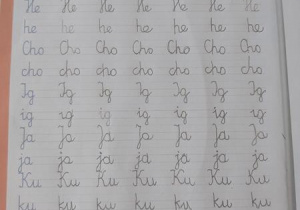 He He He He He He He
he he he he he he he
Cho Cho Cho Cho Cho Cho Cho
cho cho cho cho cho cho cho
Ig Ig Ig Ig Ig Ig Ig
ig ig ig ig ig ig ig
Ja Ja Ja Ja Ja Ja Ja
ja ja ja ja ja ja ja
Ku Ku Ku Ku Ku Ku Ku
ku ku ku ku ku ku ku